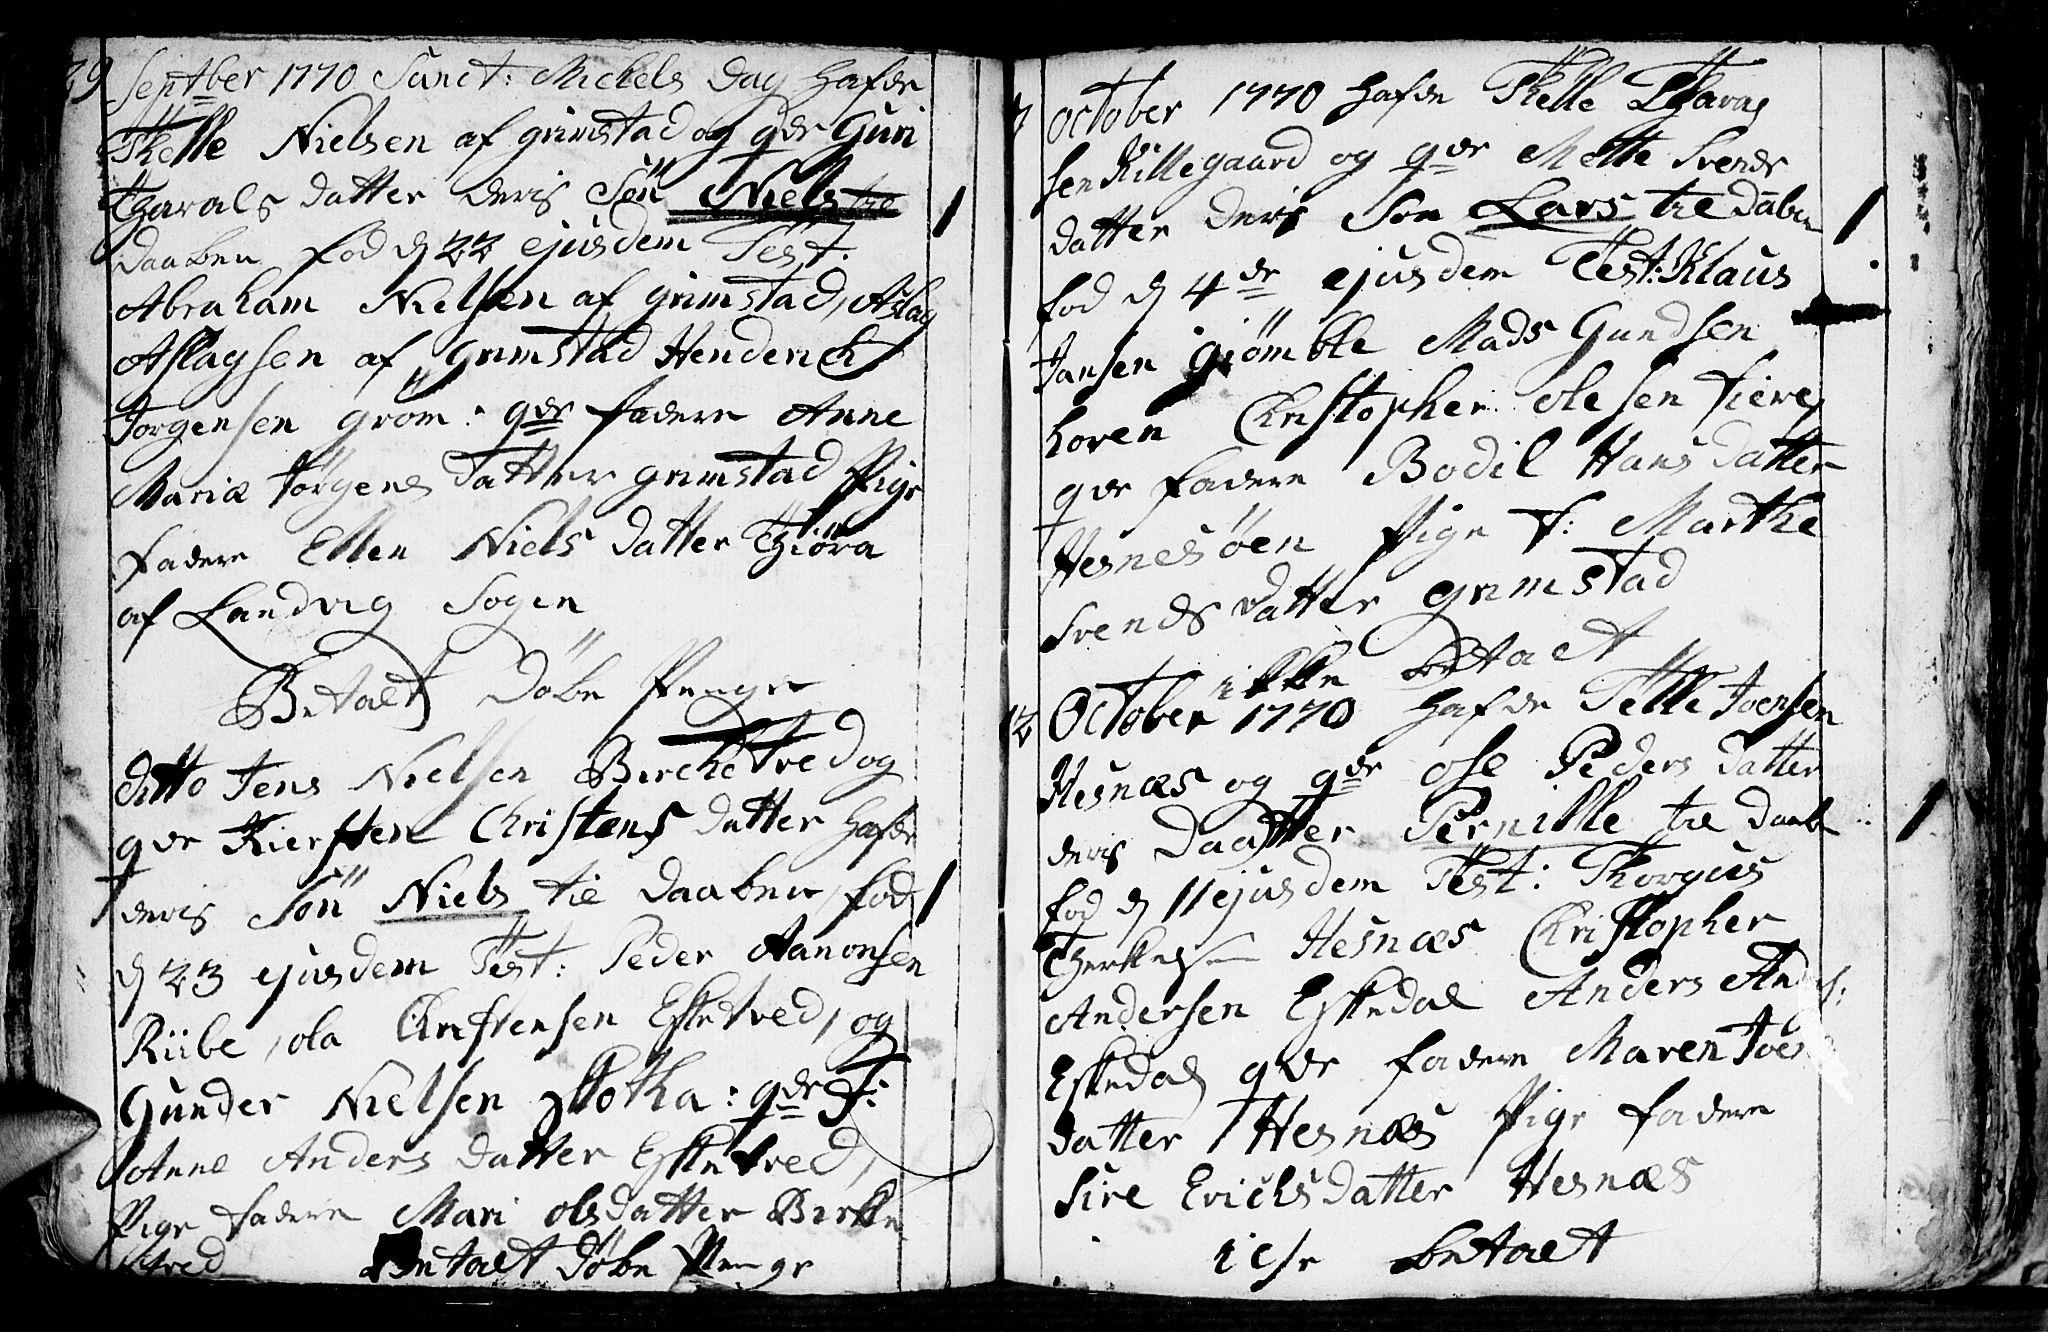 29 Septber 1770 Sanct: Mickels Dag hafde
Thelle Nielsen af grimstad og qde Guri
Tharals datter deris Søn Niels tie
daaben fod d 22 ejusdem Test:
Abraham Nielsen af grimstad, Aslag
Aslagsen af grimstad Henderich
Jorgensen grom: qde fadere Anne
Maria Jørgens datter grimstad Pige
fadere Ellen Niels datter Thiöra
af Landvig Sogen
Betalt Døbe Penge
ditto Jens Nielsen Birchetred og
qde Kiersten Christens datter hafde
deris Søn Niels tie daaben fod
d 23 ejusdem Test: Peder Aanonsen
Riibe, ola Christensen Eschetved, og
Gunder Nielsen Slotha: qde F:
Anne Anders datter Eschetved,
Pige fadere Mari ols datter Birke
tved Betalt Døbe Penge
7 October 1770 hafde Thelle Tharag
sen Killegaard og qde Mette Svends
datter deris Søn Lars tie daben
fod d 4de ejusdem Test: Klaus
Jansen Gjømble Mads Gundsen
horen Christopher olesen fiere
qde fadere Bodil Hans datter
Hesnesøen Pige F: Marthe
Svends datter grimstad
ikke betalt
12 October 1770 hafde Telle Joensen
Hesnæs og qde ose Peders datter
deris Daatter Pernille tie daab
fod d 11 ejusdem Test: Thorgius
Therkels Hesnæs Christopher
Andersen Eskedal Anders Anders:
Eskedal qde fadere Maren Joens
datter Hesnæs Pige fadere
Sire Erichs datter Hesnæs
icke betalt